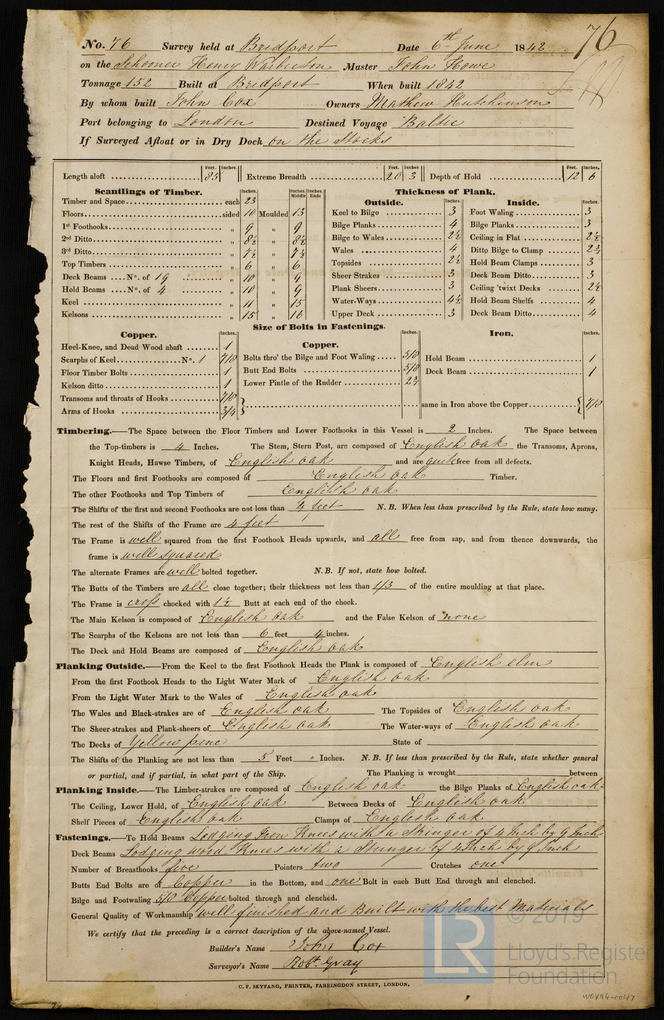 No. 76 Survey held at Bridport Date 6th June 1842 76
on the Schooner Henry Master John Howe
Tonnage 152 Built at Bridport When built 1842
By whom built John Cox Owners Mathew Hutchinson
Port belonging to London Destined Voyage Baltic
If Surveyed Afloat or in Dry Dock on the Stocks
Feet. Inches. Feet. Inches. Feet. Inches.
Length aloft 85 Extreme Breadth 20 3 Depth of Hold 12 6
Scantlings of Timber. Inches. Inches Middle Inches Ends Thickness of Plank.
Timber and Space each 23 Outside. Inches. Inside. Inches.
Floors sided 10 Moulded 13 Keel to Bilge 3 Foot Waling 3
1st Foothooks " 9 " 9 Bilge Planks 4 Bilge Planks 3
2nd Ditto " 8½ " 8½ Bilge to Wales 2½ Ceiling in Flat 2½
3rd Ditto " 7½ " 7½ Wales 4 Ditto Bilge to Clamp 2½
Top Timbers " 6 " 6 Topsides 2½ Hold Beam Clamps 3
Deck Beams No. of 19 " 10 " 9 Sheer Strakes 3 Deck Beam Ditto 3
Hold Beams No. of 4 " 10 " 9 Plank Sheers 3 Ceiling 'twixt Decks 2½
Keel " 11 " 15 Water-Ways 4½ Hold Beam Shelfs 4
Kelsons " 15 " 16 Upper Deck 3 Deck Beam Ditto 4
Size of Bolts in Fastenings.
Copper. Inches. Copper. Inches. Iron. Inches.
Heel-Knee, and Dead Wood abaft 1
Scarphs of Keel No. 1 7/10 Bolts thro' the Bilge and Foot Waling 5/0 Hold Beam 1
Floor Timber Bolts 1 Butt End Bolts 5/0 Deck Beam 1
Kelson ditto 1 Lower Pintle of the Rudder 2½
Transoms and throats of Hooks 7/0
Arms of Hooks 3/4 same in Iron above the Copper 7/0
Timbering.—The Space between the Floor Timbers and Lower Foothooks in this Vessel is 2 Inches. The Space between
the Top-timbers is 4 Inches. The Stem, Stern Post, are composed of English oak the Transoms, Aprons,
Knight Heads, Hawse Timbers, of English oak and are quite free from all defects.
The Floors and first Foothooks are composed of English oak Timber.
The other Foothooks and Top Timbers of English oak
The Shifts of the first and second Foothooks are not less than 4 feet N. B. When less than prescribed by the Rule, state how many.
The rest of the Shifts of the Frame are 4 feet
The Frame is well squared from the first Foothook Heads upwards, and all free from sap, and from thence downwards, the
frame is well squared
The alternate Frames are well bolted together. N. B. If not, state how bolted.
The Butts of the Timbers are all close together; their thickness not less than 1/3 of the entire moulding at that place.
The Frame is cross chocked with 1½ Butt at each end of the chock.
The Main Kelson is composed of English oak and the False Kelson of none
The Scarphs of the Kelsons are not less than 6 feet 4 inches.
The Deck and Hold Beams are composed of English oak
Planking Outside.—From the Keel to the first Foothook Heads the Plank is composed of English elm
From the first Foothook Heads to the Light Water Mark of English oak
From the Light Water Mark to the Wales of English oak
The Wales and Black-strakes are of English oak The Topsides of English oak
The Sheer-strakes and Plank-sheers of English oak The Water-ways of English oak
The Decks of Yellow pine State of
The Shifts of the Planking are not less than 5 Feet " Inches. N. B. If less than prescribed by the Rule, state whether general
or partial, and if partial, in what part of the Ship. The Planking is wrought between
Planking Inside.—The Limber-strakes are composed of English oak the Bilge Planks of English oak
The Ceiling, Lower Hold, of English oak Between Decks of English oak
Shelf Pieces of English oak Clamps of English oak
Fastenings.—To Hold Beams Lodging Iron Knees with a Stringer of 4 Inch by 9 Inch
Deck Beams Lodging wood Knees with a Stringer of 4 Inch by 9 Inch
Number of Breasthooks five Pointers two Crutches one
Butts End Bolts are of Copper in the Bottom, and one Bolt in each Butt End through and clenched.
Bilge and Footwaling 5/0 Copper bolted through and clenched.
General Quality of Workmanship well finished and Built with the best Materials
We certify that the preceding is a correct description of the above-named Vessel.
Builder's Name John Cox
Surveyor's Name Robt. Gray
C. F. SEYFANG, PRINTER, FARRINGDON STREET, LONDON.
© 2019
LR Lloyd's Register
Foundation